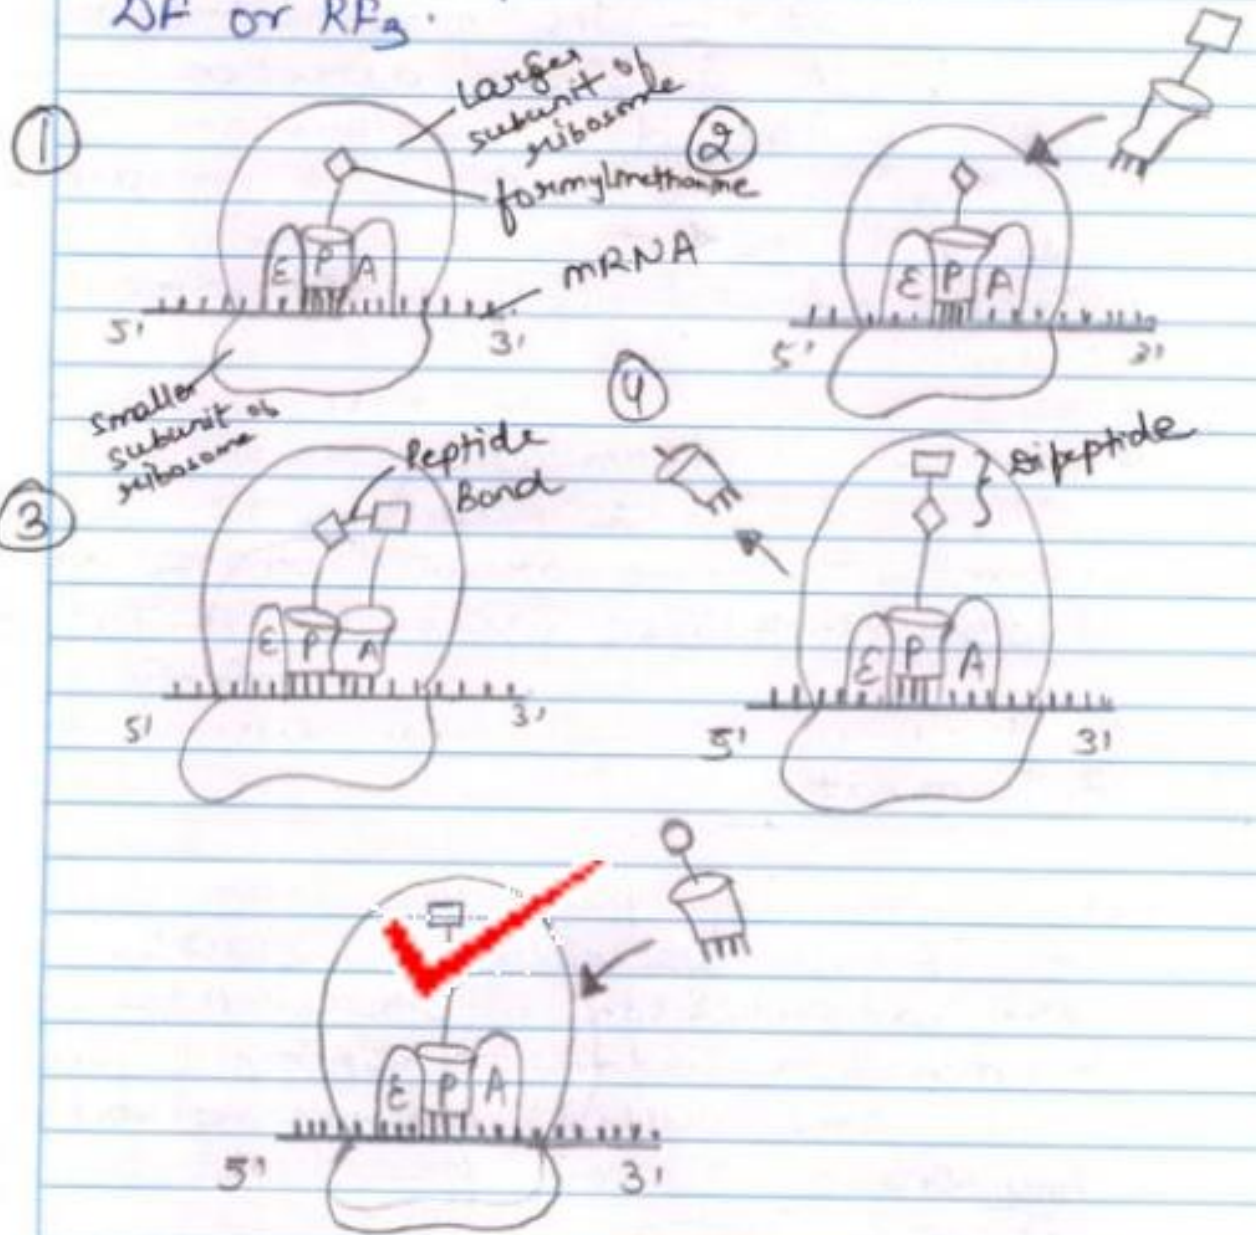 DF or RF3.
①
Larger
subunit of
ribosome
formylmethonine
mRNA
E P A
5' 3'
smaller
subunit of
ribosome
②
E P A
5' 3'
③
Peptide
Bond
E P A
5' 3'
④
Dipeptide
E P A
5' 3'
E P A
5' 3'